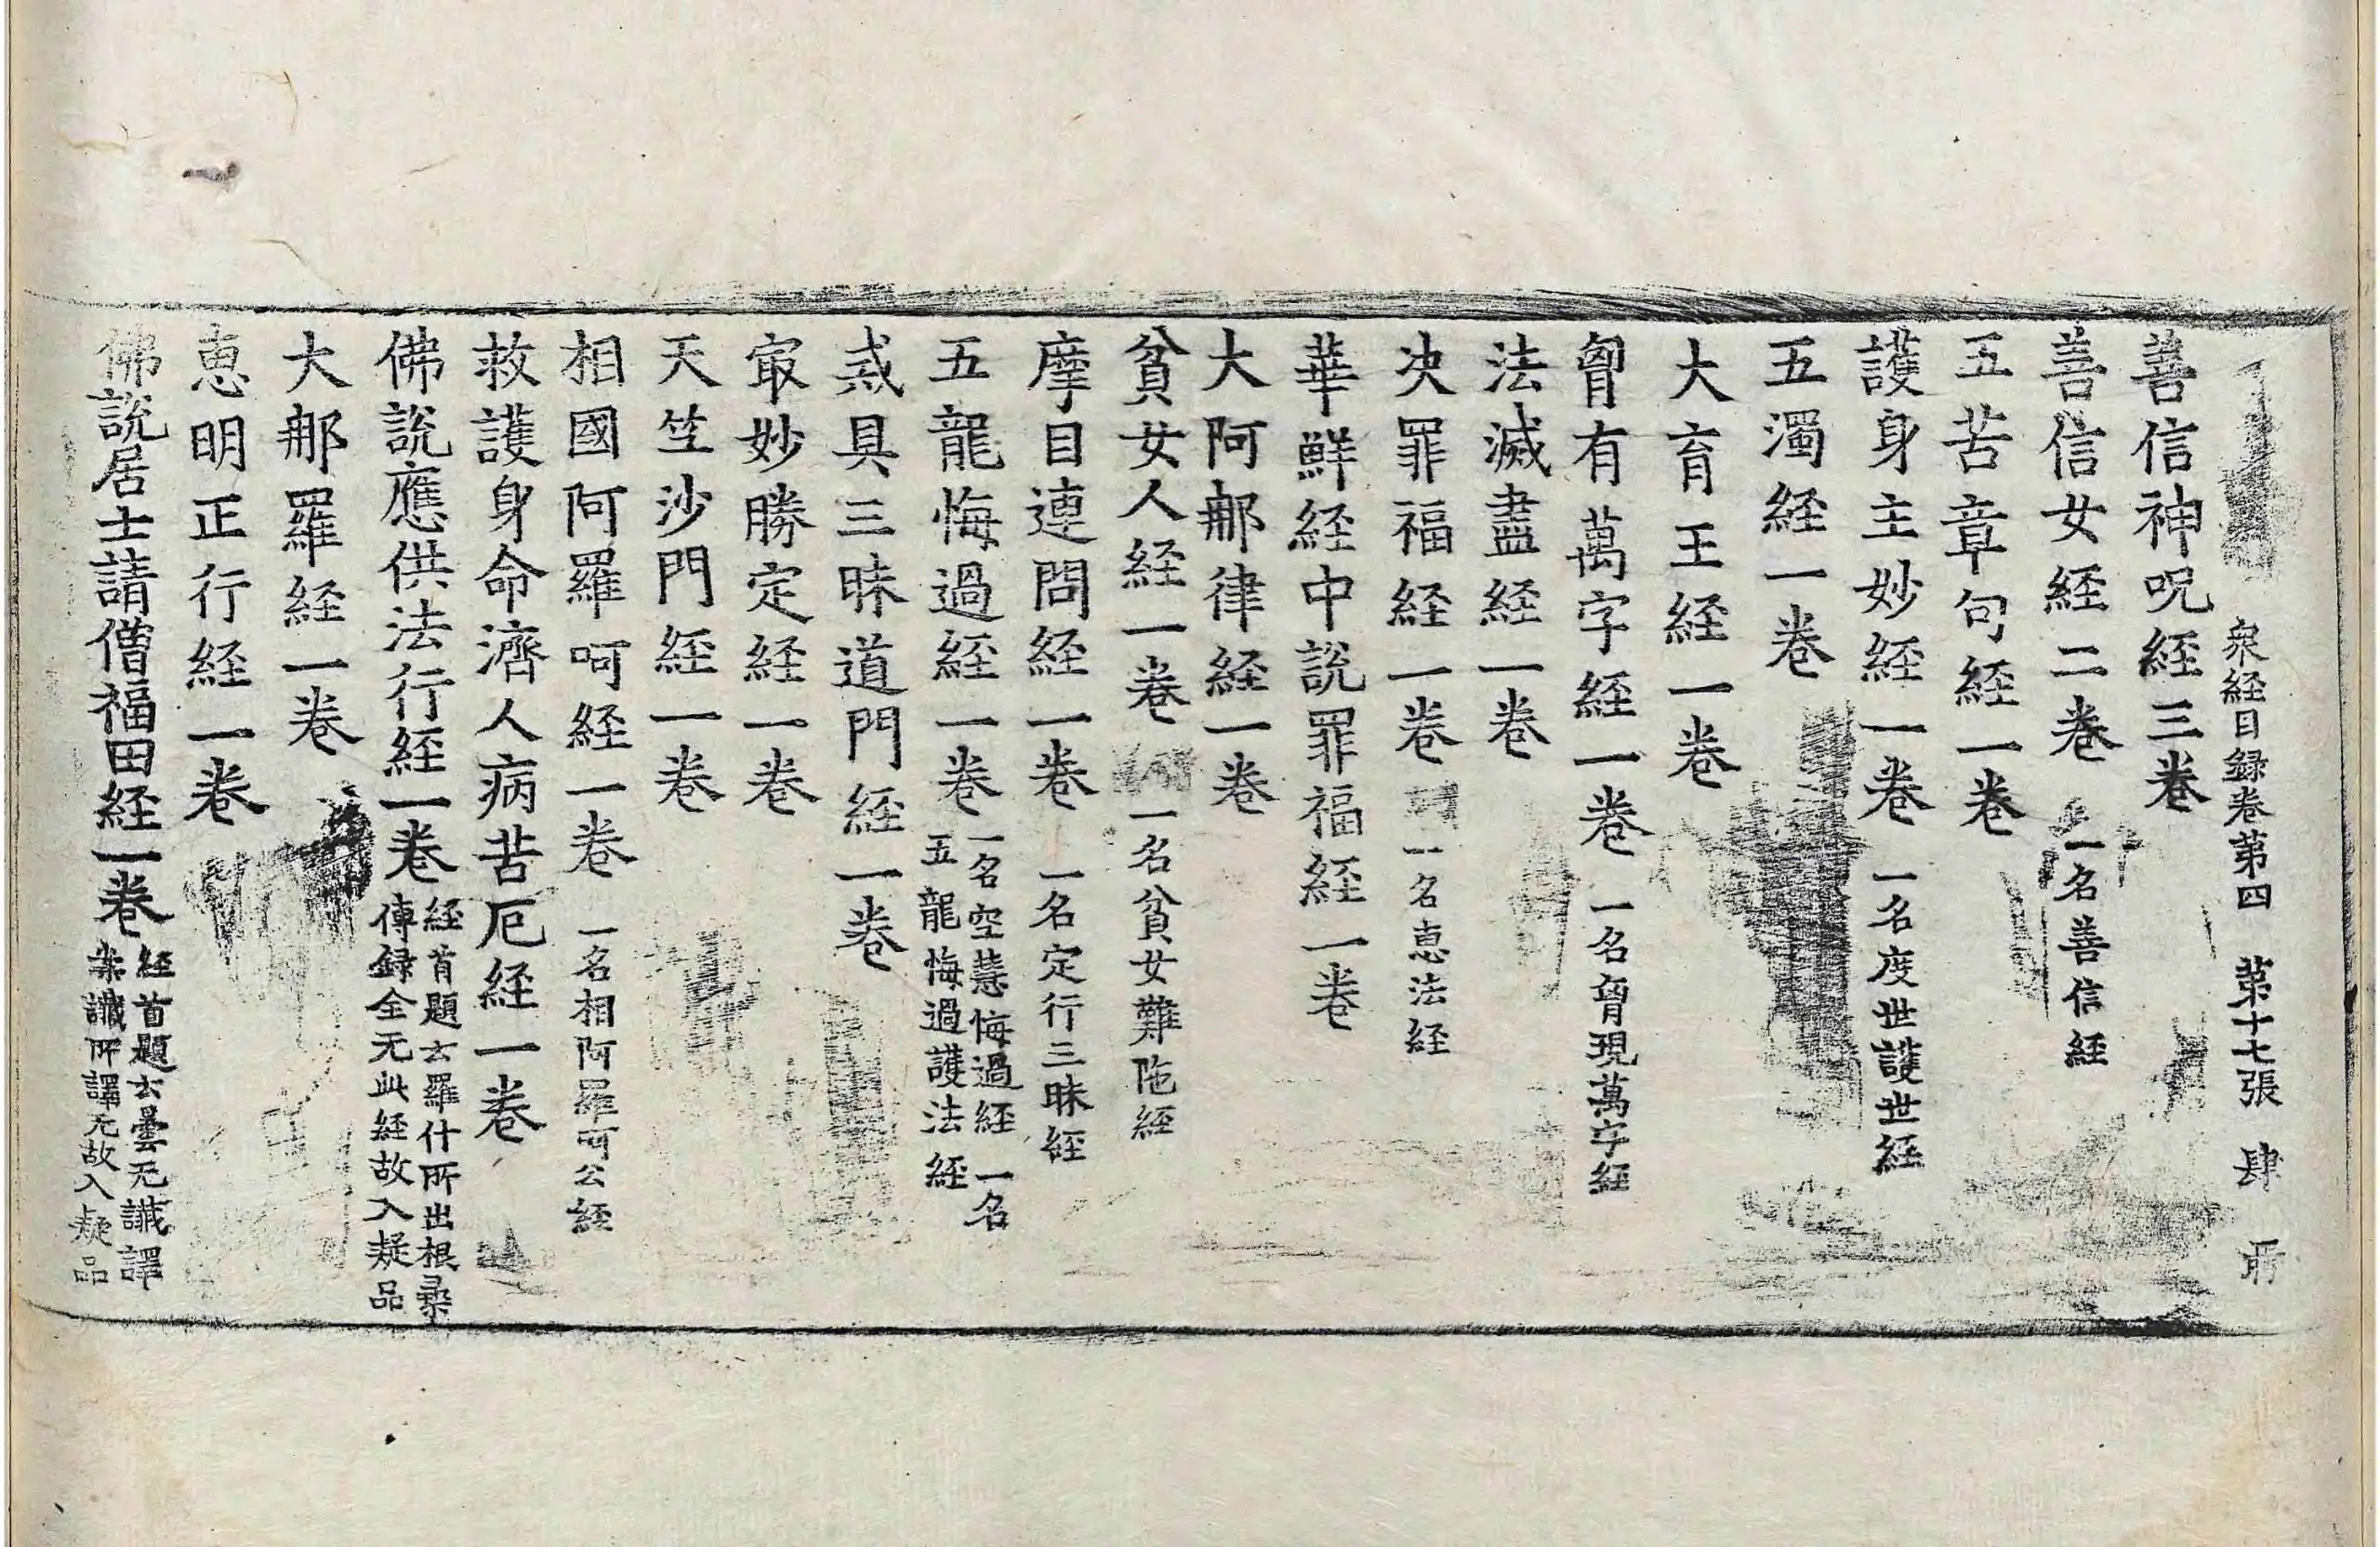 衆経目録卷第四 第十七張 肆
善信神呪経三卷
善信女経二卷 一名善信経
五苦章句経一卷
護身主妙経一卷 一名度世護世経
五濁経一卷
大育王経一卷
胷有萬字経一卷 一名胷現萬字経
法滅盡経一卷
决罪福経一卷 一名恵法経
華鮮経中說罪福経一卷
大阿那律経一卷
貧女人経一卷 一名貧女難陁経
摩目連問経一卷 一名定行三昧経
五龍悔過経一卷 一名空慧悔過経 一名五龍悔過護法経
戒具三昧道門経一卷
冣妙勝定経一卷
天竺沙門経一卷
相國阿羅呵経一卷 一名相阿羅呵公経
救護身命濟人病苦厄経一卷
佛說應供法行経一卷 経首題云羅什所出根尋傳録全无此経故入疑品
大那羅経一卷
恵明正行経一卷
佛說居士請僧福田経一卷 経首題云曇无讖譯案讖所譯无故入疑品